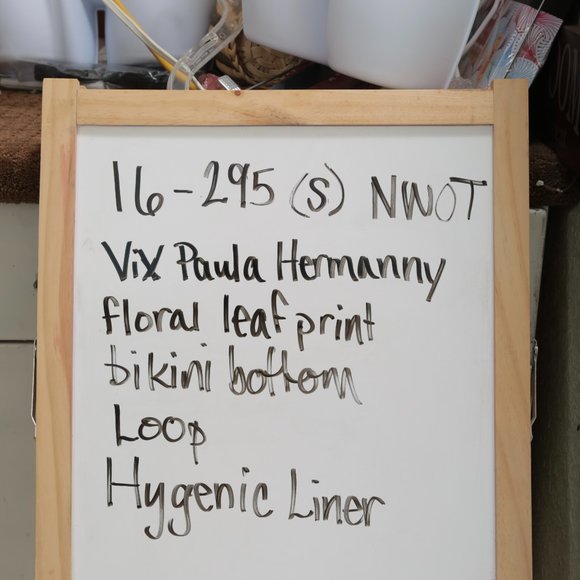 16-295 (S) NWOT
ViX Paula Hermanny
floral leaf print
bikini bottom
Loop
Hygenic Liner